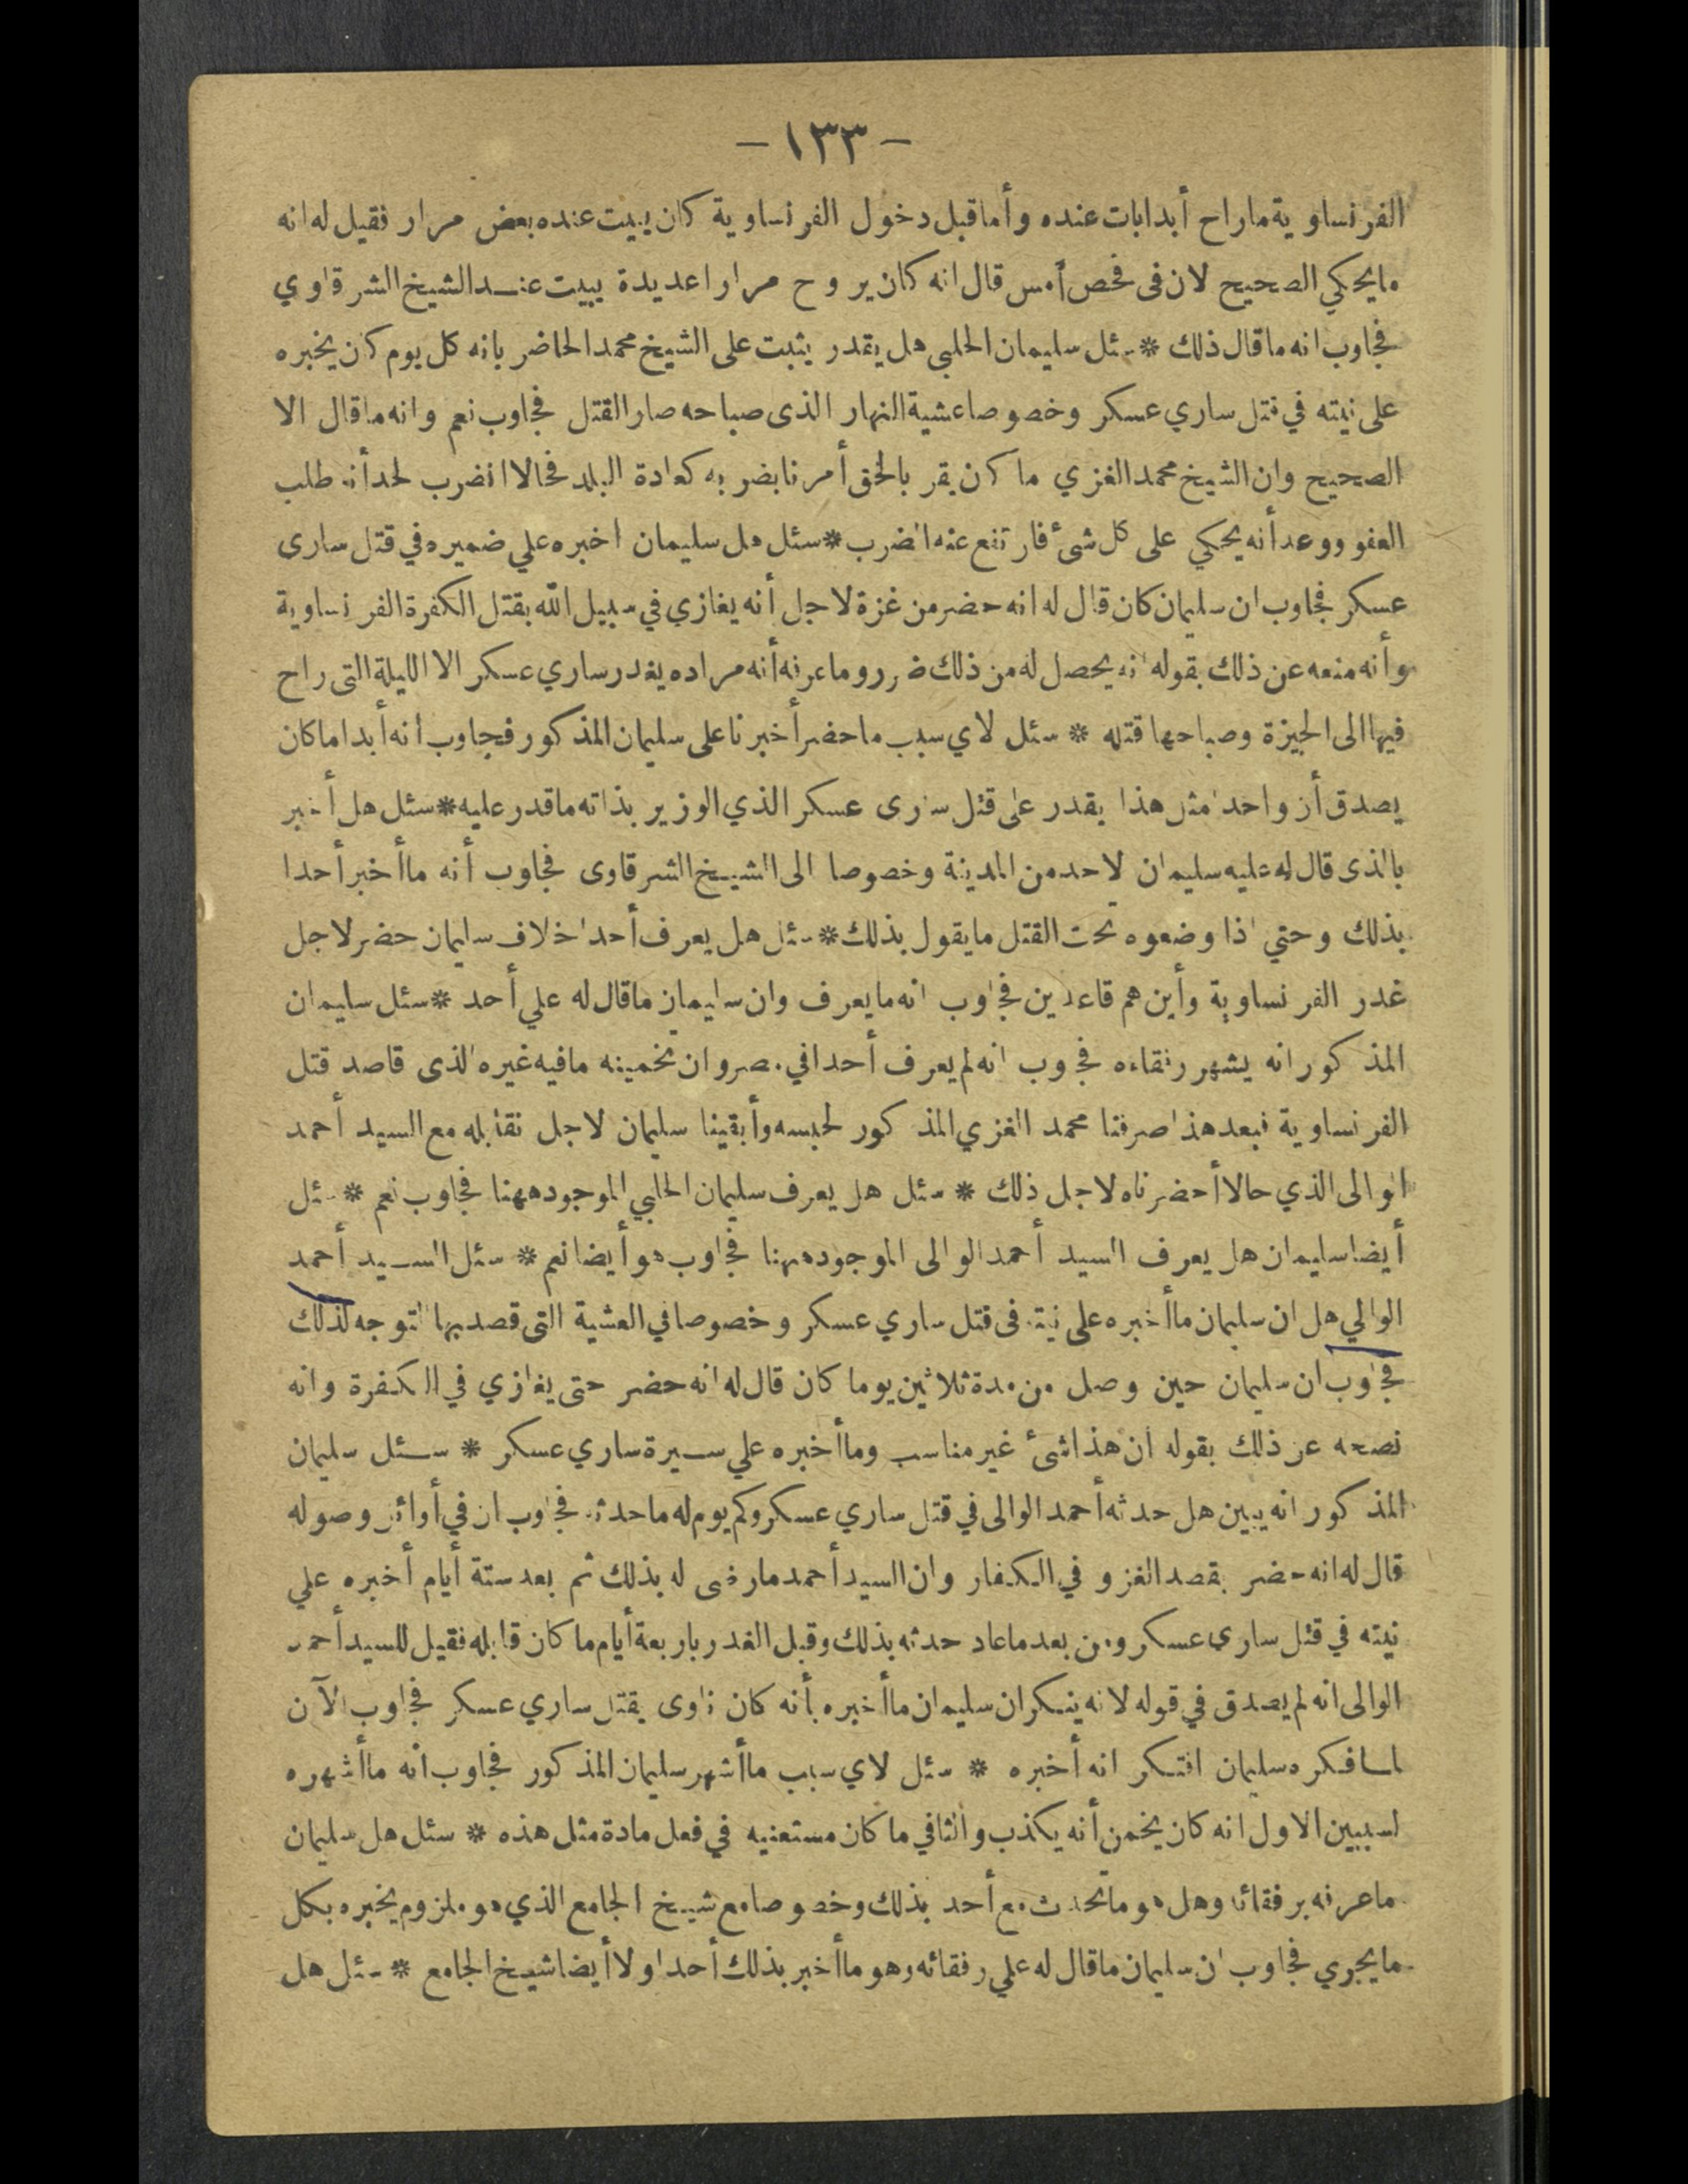 - ١٣٣ -
الفرنساوية ماراح أبدا بات عنده وأما قبل دخول الفرنساوية كان يبيت عنده بعض مرار فقيل له انه
ما يحكي الصحيح لان فى فحص أمس قال انه كان يروح مرارا عديدة يبيت عند الشيخ الشرقاوي
فجاوب انه ما قال ذلك * سئل سليمان الحلبي هل يقدر يثبت على الشيخ محمد الحاضر بانه كل يوم كان يخبره
على نيته في قتل ساري عسكر وخصوصا عشية النهار الذى صباحه صار القتل فجاوب نعم وانه ما قال الا
الصحيح وان الشيخ محمد الغزي ما كان يقر بالحق أمرنا بضربه كعادة البلد فحالا انضرب لحد أنه طلب
العفو ووعد أنه يحكي على كل شئ فارتفع عنه الضرب * سئل هل سليمان اخبره علي ضميره في قتل سارى
عسكر فجاوب ان سليمان كان قال له انه حضر من غزة لاجل أنه يغازي في سبيل الله بقتل الكفرة الفرنساوية
وأنه منعه عن ذلك بقوله انه يحصل له من ذلك ضرر وما عرفه أنه مراده يغدر ساري عسكر الا الليلة التى راح
فيها الى الجيزة وصباحها قتله * سئل لاي سبب ما حضر أخبرنا على سليمان المذكور فجاوب أنه أبدا ما كان
يصدق أن واحدا مثل هذا يقدر على قتل سارى عسكر الذي الوزير بذاته ما قدر عليه * سئل هل أخبر
بالذى قال له عليه سليمان لاحد من المدينة وخصوصا الى الشيخ الشرقاوى فجاوب أنه ما أخبر أحدا
بذلك وحتي اذا وضعوه تحت القتل ما يقول بذلك * سئل هل يعرف أحدا خلاف سليمان حضر لاجل
غدر الفرنساوية وأين هم قاعدين فجاوب انه ما يعرف وان سليمان ما قال له علي أحد * سئل سليمان
المذكور انه يشهر رفقاءه فجاوب انه لم يعرف أحدا في مصر وان تخمينه ما فيه غيره الذى قاصد قتل
الفرنساوية فبعد هذا صرفنا محمد الغزي المذكور لحبسه وأبقينا سليمان لاجل نقابله مع السيد أحمد
الوالى الذي حالا أحضرناه لاجل ذلك * سئل هل يعرف سليمان الحلبي الموجود ههنا فجاوب نعم * سئل
أيضا سليمان هل يعرف السيد أحمد الوالى الموجود ههنا فجاوب هو أيضا نعم * سئل السيد أحمد
الوالي هل ان سليمان ما أخبره على نيته فى قتل ساري عسكر وخصوصا في العشية التى قصد بها التوجه لذلك
فجاوب ان سليمان حين وصل من مدة ثلاثين يوما كان قال له انه حضر حتى يغازي في الكفرة وانه
نصحه عن ذلك بقوله ان هذا شئ غير مناسب وما أخبره علي سيرة ساري عسكر * سئل سليمان
المذكور انه يبين هل حدثه أحمد الوالى في قتل ساري عسكر وكم يوم له ما حدثه فجاوب ان في أوائل وصوله
قال له انه حضر بقصد الغزو في الكفار وان السيد أحمد ما رضى له بذلك ثم بعد ستة أيام أخبره علي
نيته في قتل ساري عسكر ومن بعد ما عاد حدثه بذلك وقبل الغدر باربعة أيام ما كان قابله فقيل للسيد أحمد
الوالى انه لم يصدق في قوله لانه ينكر ان سليمان ما أخبره بأنه كان ناوى يقتل ساري عسكر فجاوب الآن
لما فكره سليمان افتكر انه أخبره * سئل لاي سبب ما أشهر سليمان المذكور فجاوب انه ما أشهره
لسببين الاول انه كان يخمن أنه يكذب والثاني ما كان مستعنيه في فعل مادة مثل هذه * سئل هل سليمان
ما عرفه برفقائه وهل هو ما تحدث مع أحد بذلك وخصوصا مع شيخ الجامع الذي هو ملزوم يخبره بكل
ما يجري فجاوب ان سليمان ما قال له علي رفقائه وهو ما أخبر بذلك أحدا ولا أيضا شيخ الجامع * سئل هل